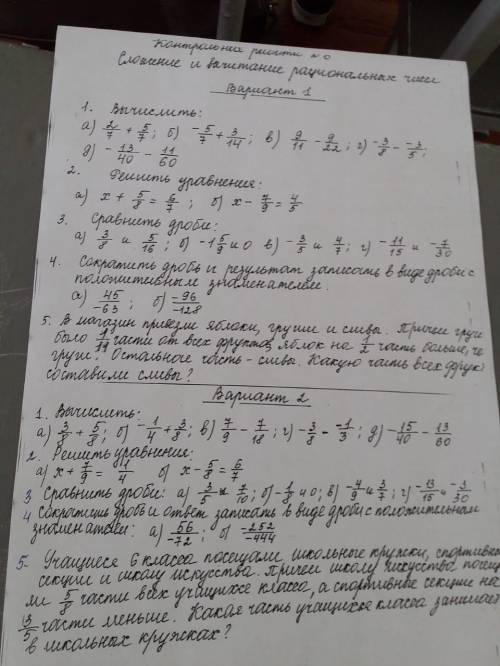 Контрольная работа №
Сложение и вычитание рациональных чисел
Вариант 1
1. Вычислить:
а) 2/7 + 5/7; б) -5/7 + 3/14; в) 9/11 - 9/22; г) -3/8 - -3/5;
д) -13/40 - 11/60
2. Решить уравнения:
а) x + 5/8 = 6/7; б) x - 7/9 = 4/5
3. Сравнить дроби:
а) 3/8 и 5/16; б) -1 5/9 и 0 в) -3/5 и 4/7; г) -11/15 и -7/30
4. Сократить дробь и результат записать в виде дроби с
положительным знаменателем.
а) 45/-63; б) -96/-128
5. В магазин привезли яблоки, груши и сливы. Причем груш
было части от всех фруктов, яблок на 1/2 часть больше, че
груш. Остальное часть - сливы. Какую часть всех фрук
составили сливы?
Вариант 2
1. Вычислить:
а) 3/8 + 5/8; б) -1/4 + 3/8; в) 7/9 - 7/18; г) -3/8 - -1/3; д) -15/40 - 13/60
2. Решить уравнения:
а) x + 7/9 = 1/4 б) x - 5/8 = 6/7
3 Сравнить дроби: а) -3/5 и 7/10; б) -1/8 и 0; в) -4/9 и 3/7; г) -13/15 и -3/30
4 Сократить дробь и ответ записать в виде дроби с положительным
знаменателем: а) 56/-72; б) -252/-444
5. Учащиеся 6 класса посещали школьные кружки, спортивны
секции и школу искусства. Причем школу искусства посещ
ли 5/8 части всех учащихся класса, а спортивные секции на
части меньше. Какая часть учащихся класса занимает
в школьных кружках?